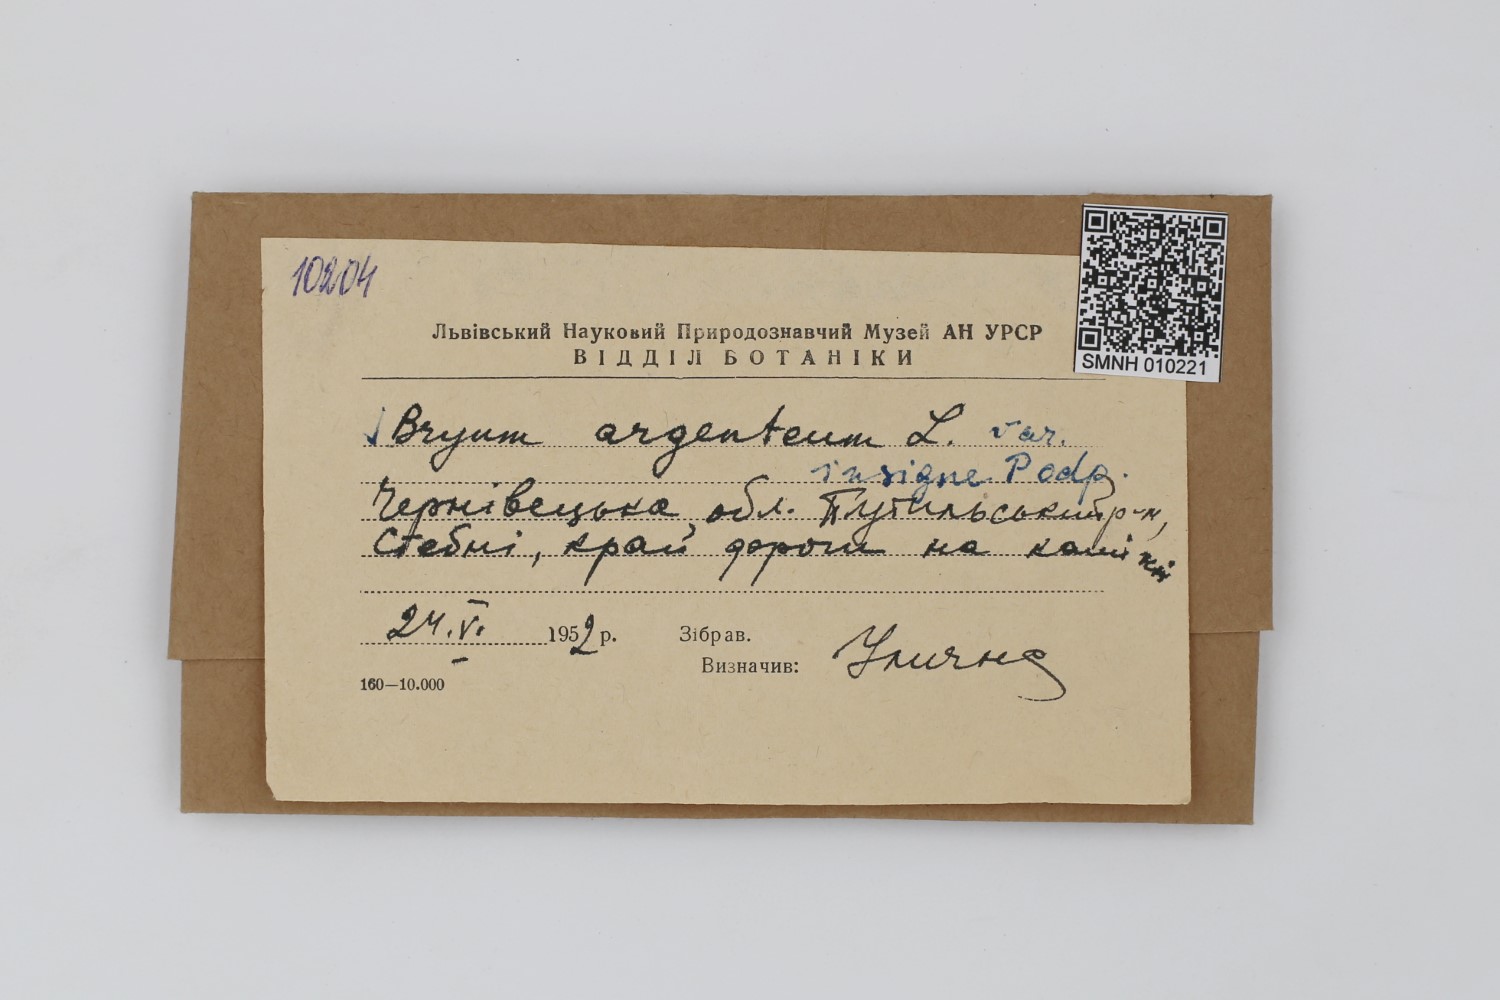 10204
SMNH 010221
Львівський Науковий Природознавчий Музей АН УРСР
ВІДДІЛ БОТАНІКИ
Bryum argenteum L. var.
insigne Podp.
Чернівецька обл. Путильський р-н,
Стебні, край дороги на камінні
24.V. 1952 р. Зібрав.
Визначив: Улична
160—10.000